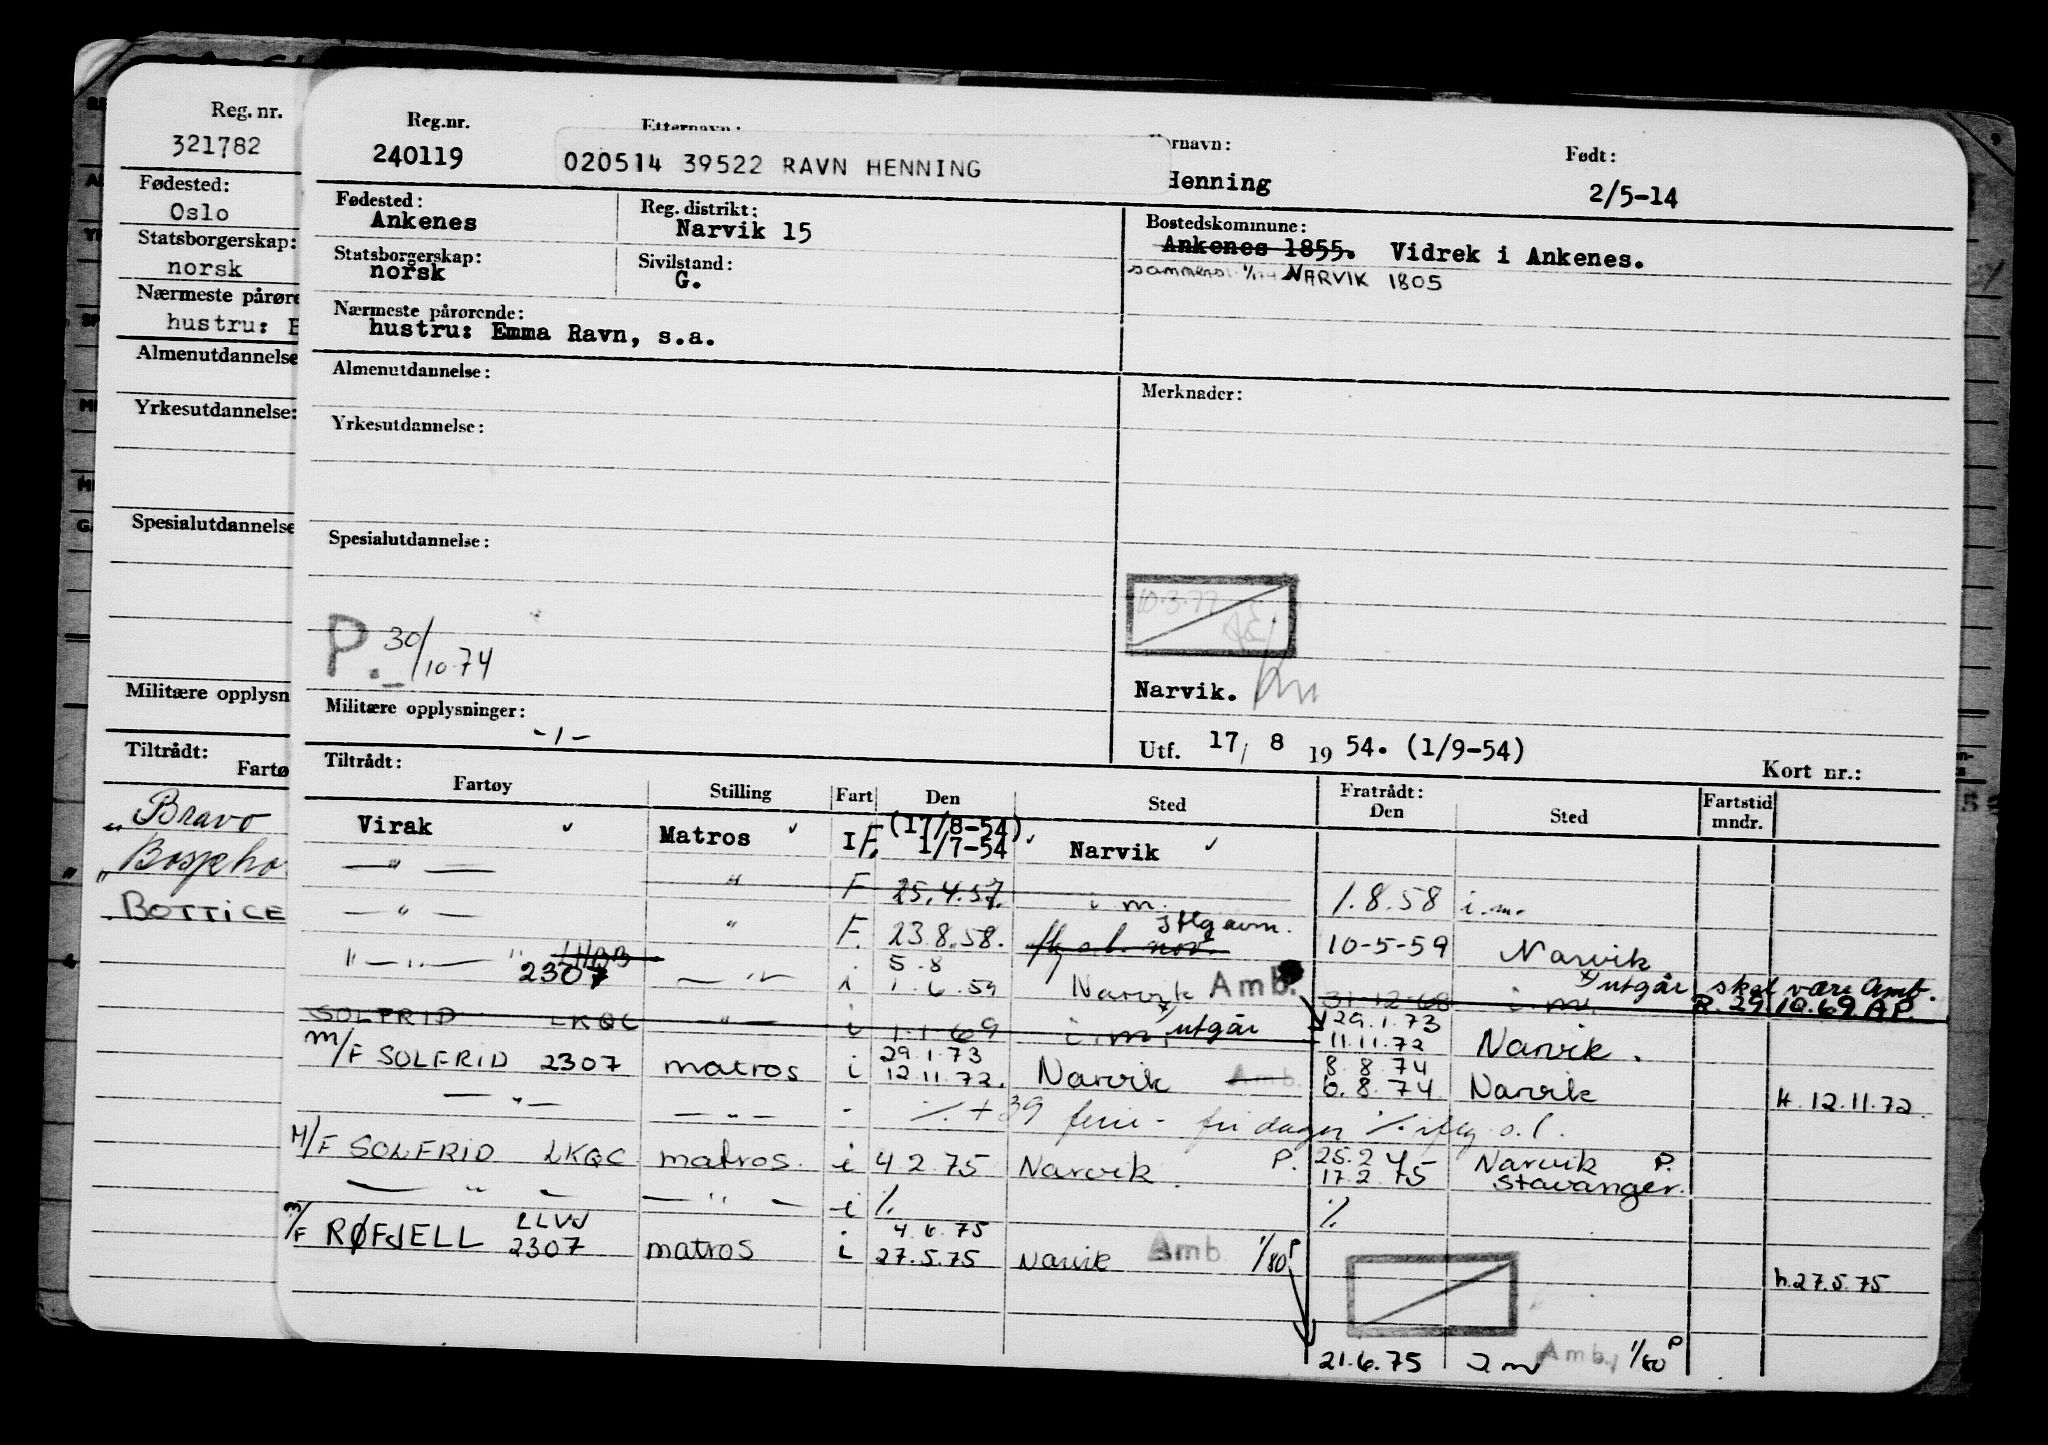 Reg. nr.
321782
Fødested:
Oslo
Statsborgerskap:
norsk
Nærmeste pårøre
hustru: E
Almenutdannelse
Yrkesutdannelse:
Spesialutdannelse
Militære opplysn
Tiltrådt:
Fartø
Bravo
BOTTICE
Reg.nr.
240119
Etternavn:
020514 39522 RAVN HENNING
ornavn:
Henning
Født:
2/5-14
Fødested:
Ankenes
Reg. distrikt:
Narvik 15
Bostedskommune:
Ankenes 1855. Vidrek i Ankenes.
NARVIK 1805
Statsborgerskap:
norsk
Sivilstand:
G.
Nærmeste pårørende:
hustru: Emma Ravn, s.a.
Almenutdannelse:
Merknader:
Yrkesutdannelse:
Spesialutdannelse:
10.3.77
P. 30/10-74
Narvik.
Militære opplysninger:
-/-
Utf. 17/ 8 1954. (1/9-54)
Tiltrådt:
Kort nr.:
Fartøy Stilling Fart Den Sted Fratrådt: Den Sted Fartstid mndr.
(17/8-54)
Virak Matros I F. 1/7-54 Narvik
—"— " F 25.4.57. i m. 1.8.58 i.m.
—"— " F. 23.8.58. 10-5-59 Narvik
5.8
2307 —"— i 1.6.59 Narvik Amb. 31.12.68 i m. utgår skal være Amb.
R. 29.10.69 A.P.
SOLFRID LKQC "— i 1.1.69 i.m. utgår 29.1.73
11.11.72 Narvik.
29.1.73 8.8.74
M/F SOLFRID 2307 matros i 12.11.72. Narvik Amb. 6.8.74 Narvik H. 12.11.72.
—"— —"— - % + 39 ferie - fridager % o.l.
M/F SOLFRID LKQC matros. i 4 2.75 Narvik. P. 25.2 Narvik P.
17.2.75 Stavanger.
—"— —"— i % %
LLVJ 4.6.75
M/F RØFJELL 2307 matros i 27.5.75 Narvik Amb. 1/80 P
h.27.5.75
21.6.75 Amb. 1/80 P